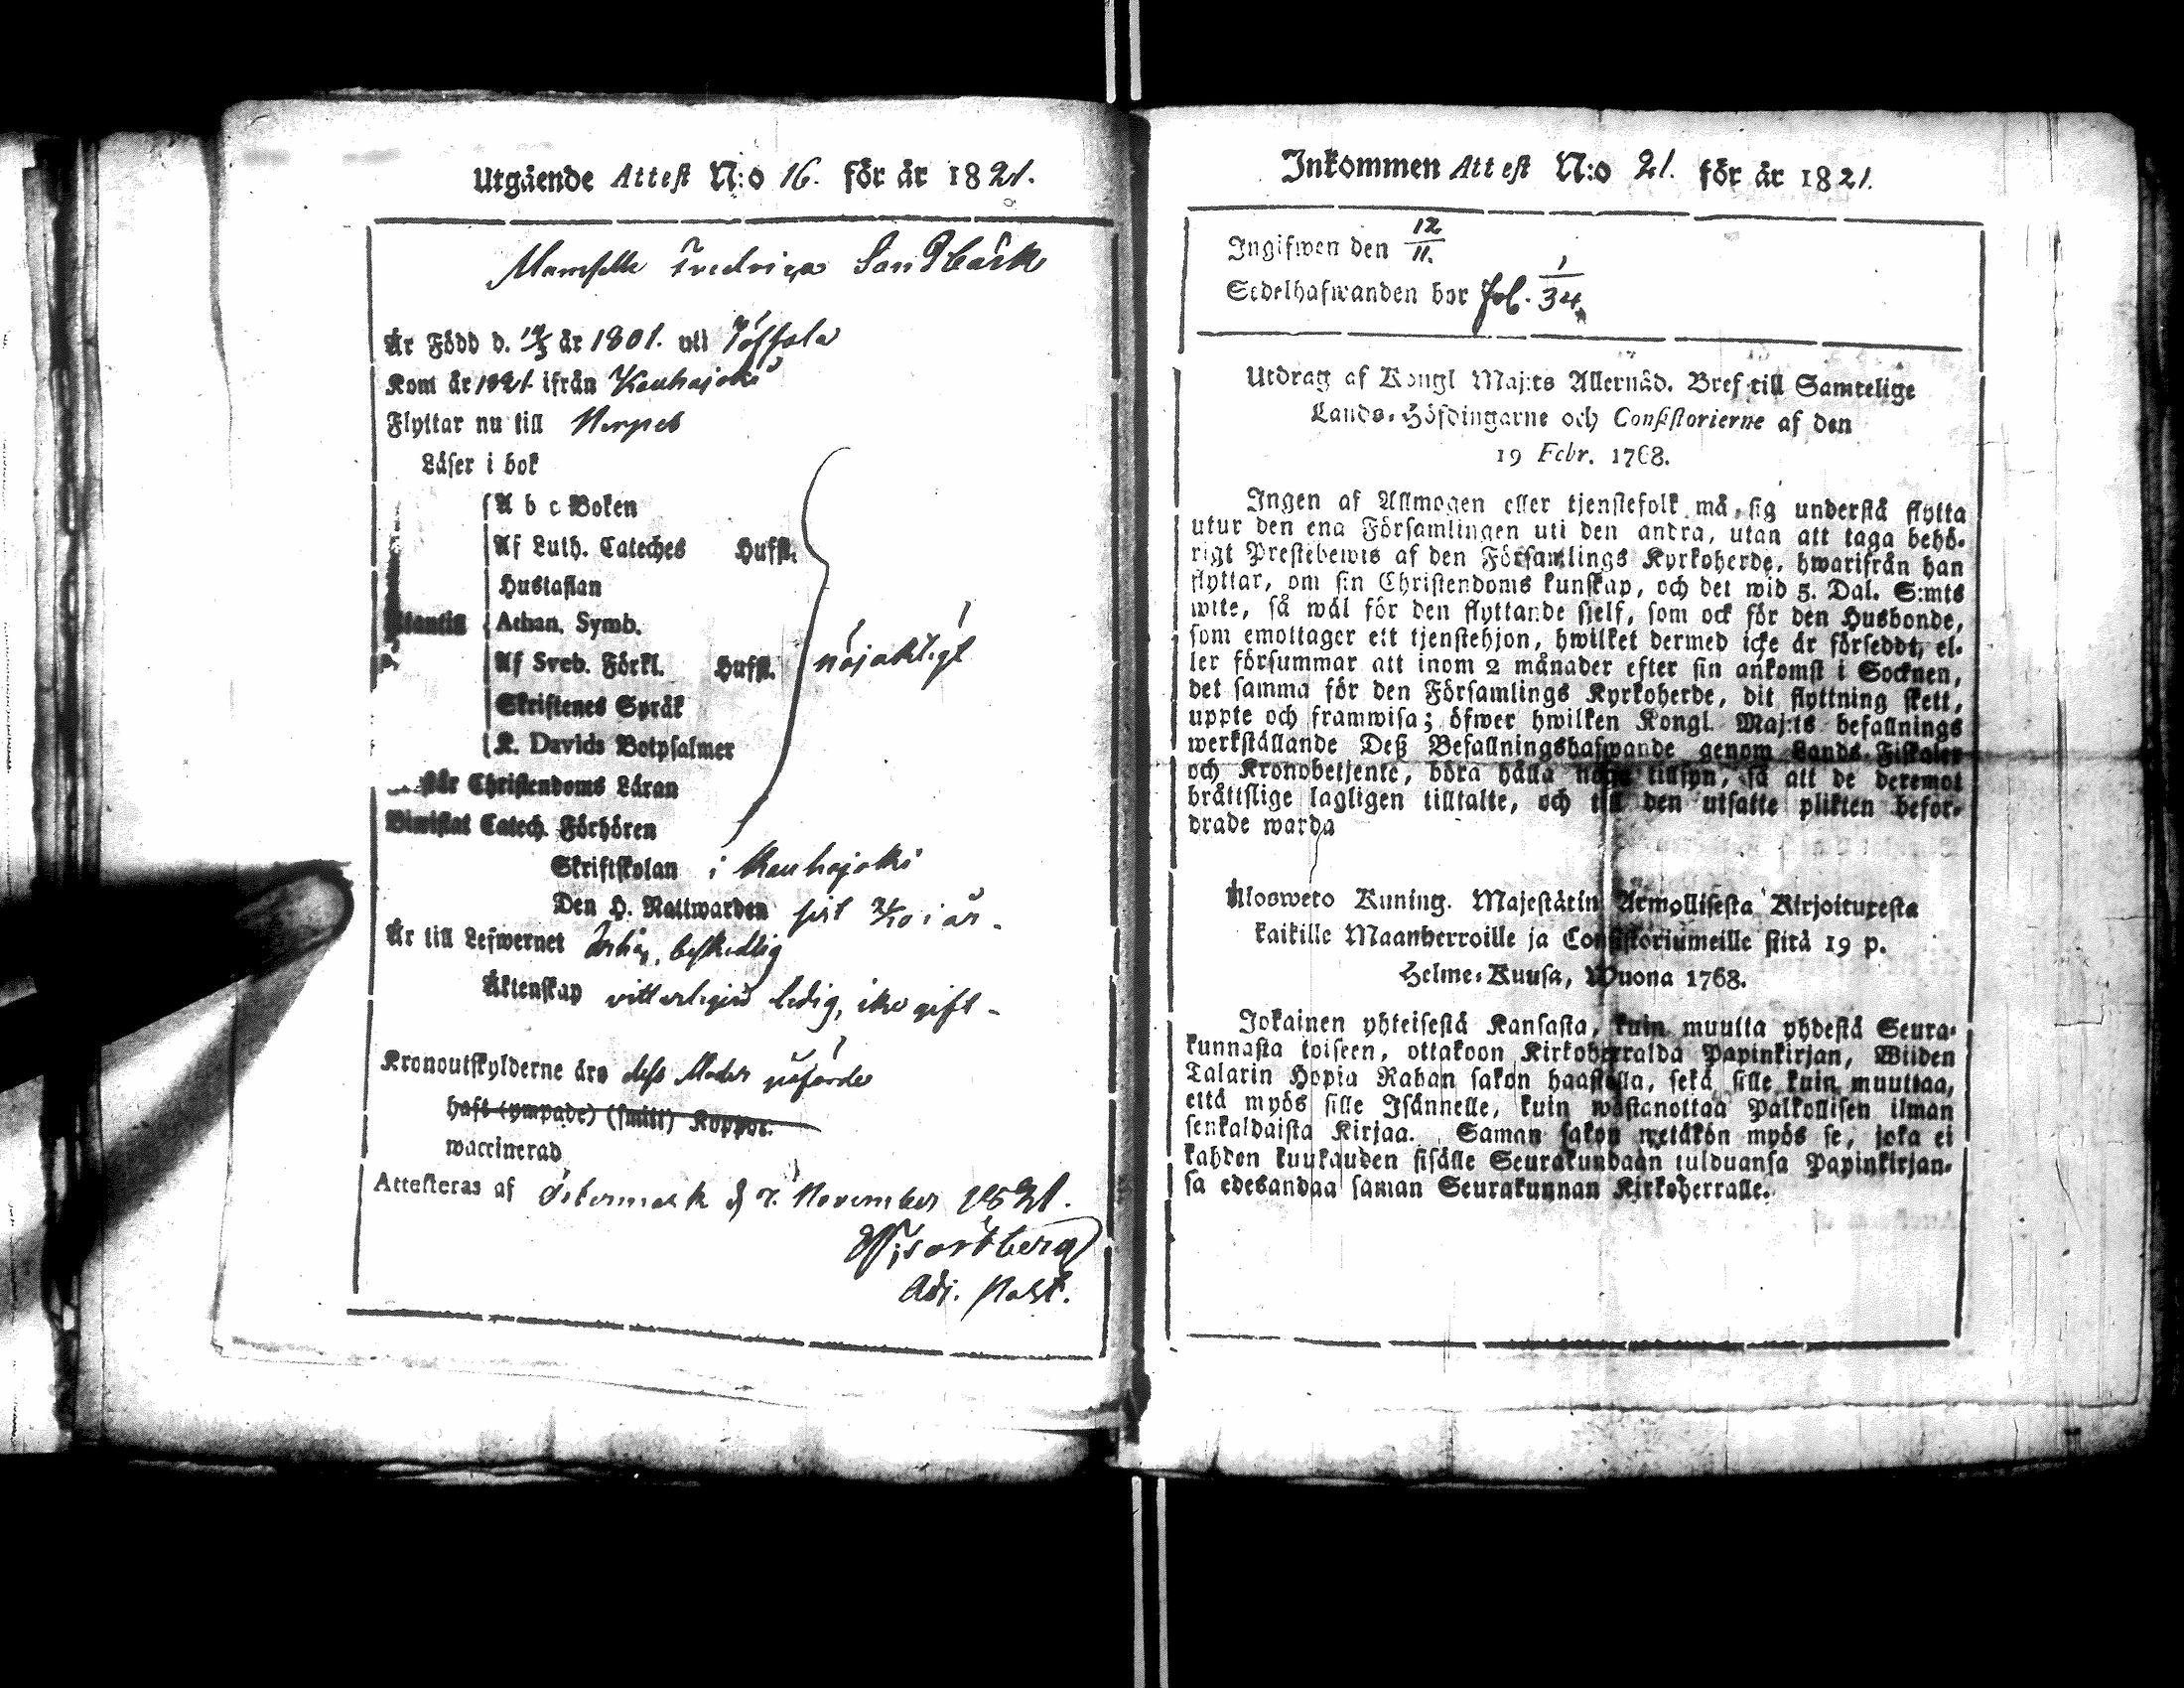 Utgående Attest N:o 16. för år 1821.
Mamselle Fredrica Sandbäck
Är Född d. år 1801. uti
Kom år 1821 ifrån Kauhajoki
Flyttar nu till Nerpes
Läser i bok
A b c Boken
Af Luth. Cateches Husfl.
Hustaflan
Utantill Athan. Symb.
Af Sveb. Förkl. Husfl. nöjaktigt
Skriftenes Språk
K. Davids Botpsalmer
står Christendoms Läran
Biwistat Catech. Förhören
Skriftskolan i Kauhajoki
Den H. Nattwarden sist i år.
Är till Lefwernet beskedlig
Äktenskap vitterligen ledig, icke gift.
Kronoutskylderne äro dess Moder påförde
haft (ympade) (smitt) Koppor.
waccinerad
Attesteras af Östermark d. 7. November 1821.
Adj. Past.
Inkommen Attest N:o 21. för år 1821.
Ingifwen den 12/11.
Sedelhafwanden bor Fol. 1/34.
Utdrag af Kongl Maj:ts Allernåd. Bref till Samtelige
Lands-Höfdingarne och Consistorierne af den
19 Febr. 1768.
Ingen af Allmogen eller tjenstefolk må sig understå flytta
utur den ena Församlingen uti den andra, utan att taga behö-
rigt Prestebewis af den Församlings Kyrkoherde, hwarifrån han
flyttar, om sin Christendoms kunskap, och det wid 5. Dal. S:mts
wite, så wäl för den flyttande sjelf, som ock för den Husbonde,
som emottager ett tjenstehjon, hwilket dermed icke är försedt, el-
ler försummar att inom 2 månader efter sin ankomst i Socknen,
det samma för den Församlings Kyrkoherde, dit flyttning skett,
uppte och framwisa; öfwer hwilken Kongl. Maj:ts befallnings
werkställande Deß Befallningshafwande genom Lands-Fiskaler
och Kronobetjente, böra hålla noga tillsyn, så att de deremot
bråttslige lagligen tilltalte, och till den utsatte plikten befor-
drade warda
Ulosweto Kuning. Majestätin Armollisesta Kirjoituxesta
kaikille Maanherroille ja Consistoriumeille siitä 19 p.
Helme-Kuusa, Wuona 1768.
Jokainen yhteisestä Kansasta, kuin muutta yhdestä Seura-
kunnasta toiseen, ottakoon Kirkoherralda Papinkirjan, Wiiden
Talarin Hopia Rahan sakon haastolla, sekä sille kuin muuttaa,
että myös sille Isännelle, kuin wastanottaa Palkollisen ilman
senkaldaista Kirjaa. Saman sakon wetäkön myös se, joka ei
kahden kuukauden sisälle Seurakundaan tulduansa Papinkirjan-
sa edesandaa saman Seurakunnan Kirkoherralle.